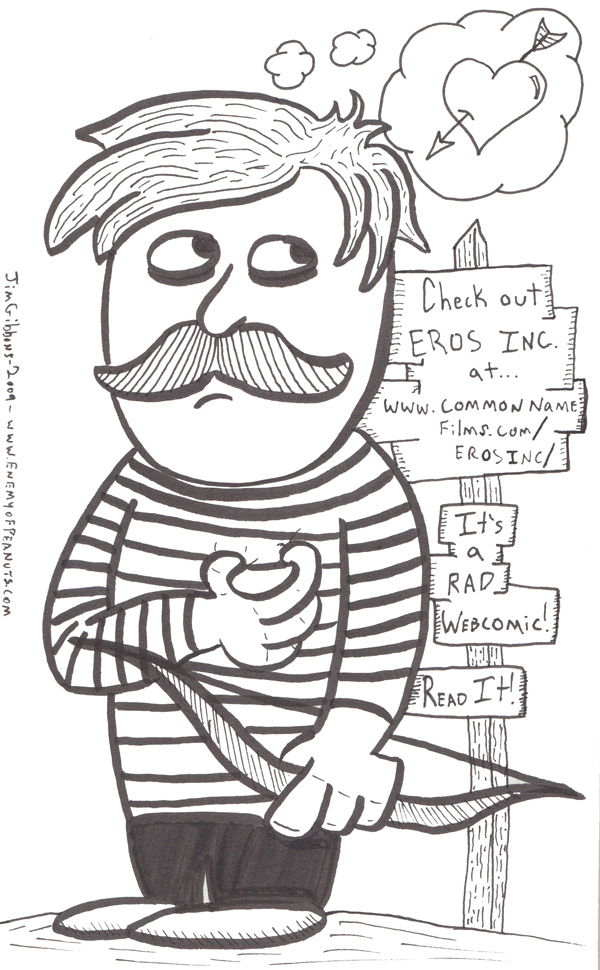 Check out
EROS INC.
at...
www.COMMON NAME
Films.com/
EROSINC/
It's
a
RAD
WEBCOMIC!
READ IT!
JimGibbons-2009-www.ENEMYOFPEANUTS.COM